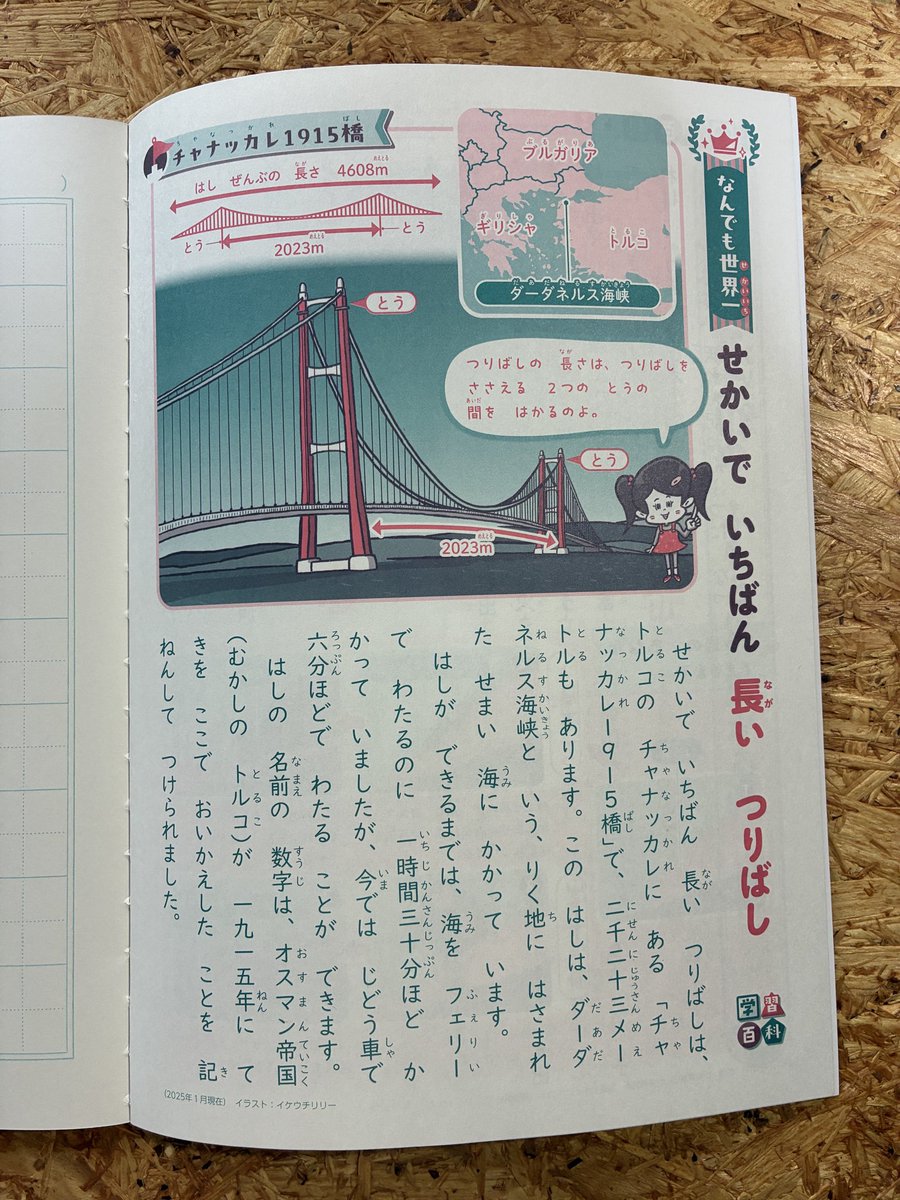 なんでも世界一
せかいで いちばん 長い つりばし
学習百科
チャナッカレ1915橋
はし ぜんぶの 長さ 4608m
とう
とう
2023m
ブルガリア
ギリシャ
トルコ
ダーダネルス海峡
とう
つりばしの 長さは、つりばしを
ささえる 2つの とうの
間を はかるのよ。
とう
2023m
せかいで いちばん 長い つりばしは、
トルコの チャナッカレに ある 「チャ
ナッカレ1915橋」で、二千二十三メー
トルも あります。この はしは、ダーダ
ネルス海峡と いう、りく地に はさまれ
た せまい 海に かかって います。
はしが できるまでは、海を フェリー
で わたるのに 一時間三十分ほど か
かって いましたが、今では じどう車で
六分ほどで わたる ことが できます。
はしの 名前の 数字は、オスマン帝国
(むかしの トルコ)が 一九一五年に て
きを ここで おいかえした ことを 記
ねんして つけられました。
(2025年1月現在) イラスト:イケウチリリー